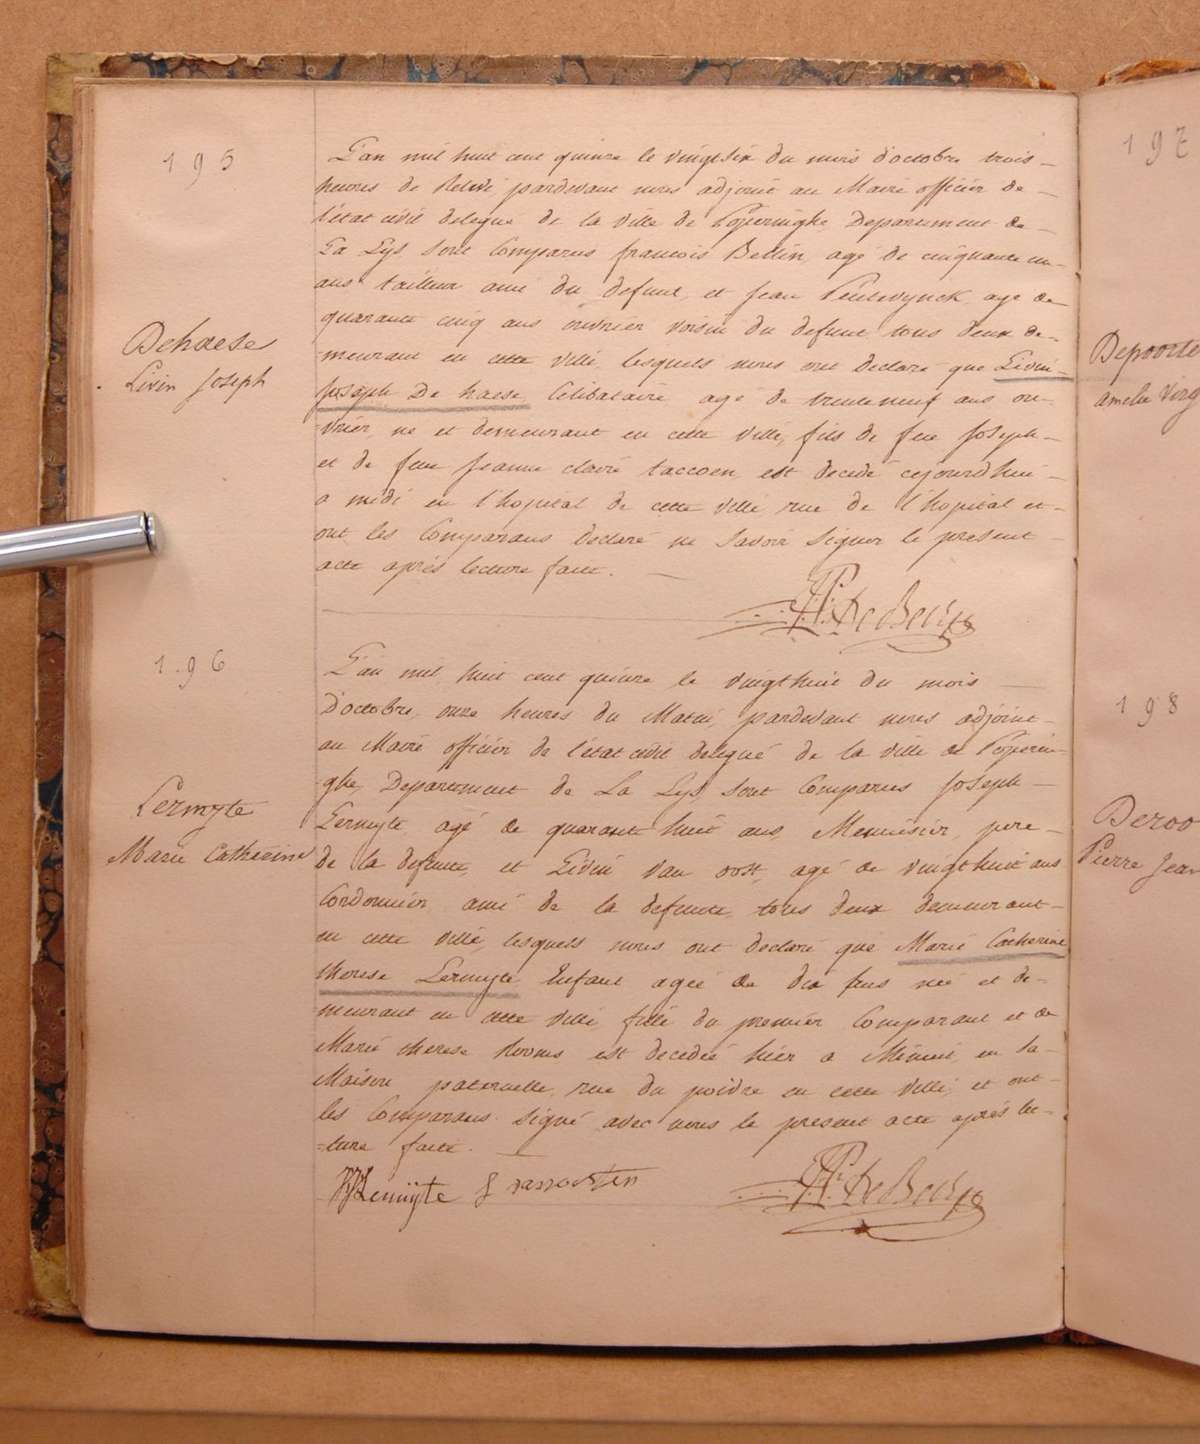 195
L'an mil huit cent quinze le vingt six du mois d'octobre trois
heures de Relevé pardevant nous adjoint au Maire officier de
l'état civil delegué de la ville de Poperinghe Departement de
La Lys, sont Comparus francois Bellin, agé de cinquante un
ans tailleur ami du defunt, et Jean agé de
quarante cinq ans ouvrier voisin du defunt tous deux de-
Dehaese
-meurant en cette ville, lesquels nous ont declaré que Livin
Livin Joseph
Joseph De haese, Célibataire agé de trente neuf ans ou-
vrier, né et demeurant en cette ville, fils de feu Joseph
et de feue Jeanne claire taccoen, est decedé cejourdhui
a midi en l'hopital de cette ville rue de l'hopital et
ont les Comparans declaré ne savoir signer le present
acte après lecture faite.
De
196
L'an mil huit cent quinze le vingt huit du mois
D'octobre, onze heures du Matin, pardevant nous adjoint
au Maire officier de l'état civil delegué de la ville de Poperin-
ghe, Departement de La Lys, sont Comparus Joseph
Lermyte
Lermyte, agé de quarante huit ans, Menuisier, pere
Marie Catherine
de la defunte, et Livin van oost, agé de vingt huit ans
Cordonnier, ami de la defunte, tous deux demeurant
en cette ville, lesquels nous ont declaré que Marie Catherine
therese Lermyte Enfant agée de dix ans née et de-
meurant en cette ville fille du premier Comparant et de
Marie therese est decedée hier a Minuit, en sa
Maison paternelle, rue du poivre en cette ville, et ont
les Comparans signé avec nous le present acte après lec-
-ture faite.
Lermijte
De
197
Depoorte
Amelie Virg
198
Deroo
Pierre Jean